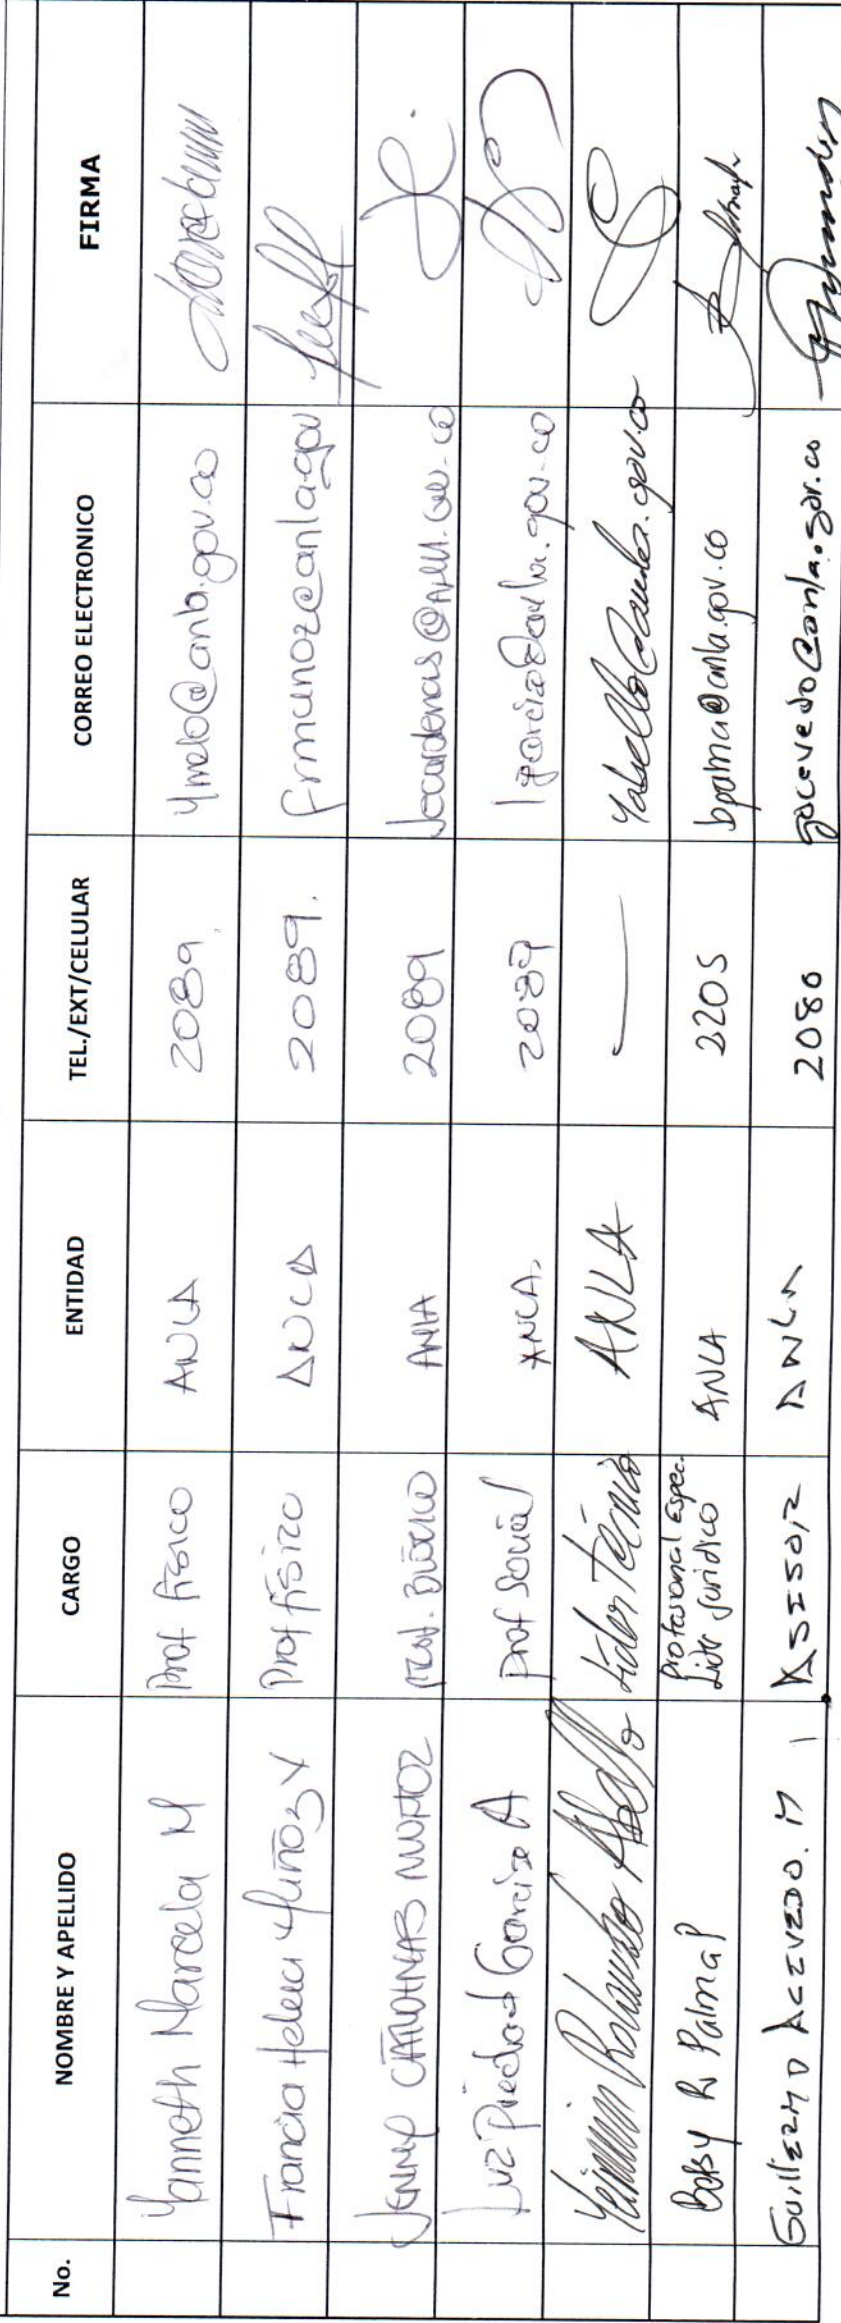 No. NOMBRE Y APELLIDO CARGO ENTIDAD TEL./EXT/CELULAR CORREO ELECTRONICO FIRMA
Yanneth Marcela M Prof físico ANLA 2089. ymelo@anla.gov.co
Francia Helena Muñoz V Prof físico ANLA 2089. frmunoz@anla.gov
JENNY CARDENAS MUÑOZ PROF. BIÓTICO ANLA 2089 Jecardenas@ANLA.GOV.CO
Luz Piedad Garcia A prof social ANLA. 2089 lgarcia@anla.gov.co
Rolando Abello Lider Técnico ANLA — yabello@anla.gov.co
Betsy R Palma P Profesional Espec. Lider Jurídico ANLA 2205 bpalma@anla.gov.co
GUILLERMO ACEVEDO. M ASESOR ANLA 2080 gacevedo@anla.gov.co